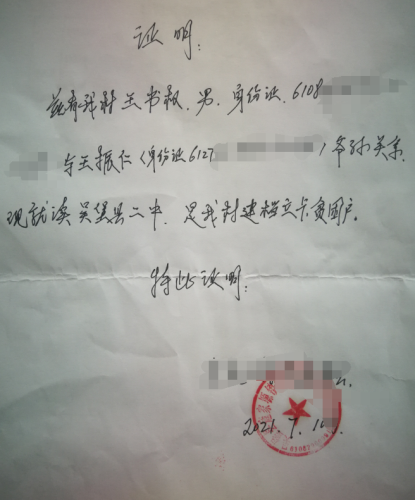 证明:
兹有我村王书叔,男,身份证,6108
与王振仁(身份证6127)爷孙关系,
现就读吴堡县二中,是我村建档立卡贫困户。
特此证明:
2021.7.10